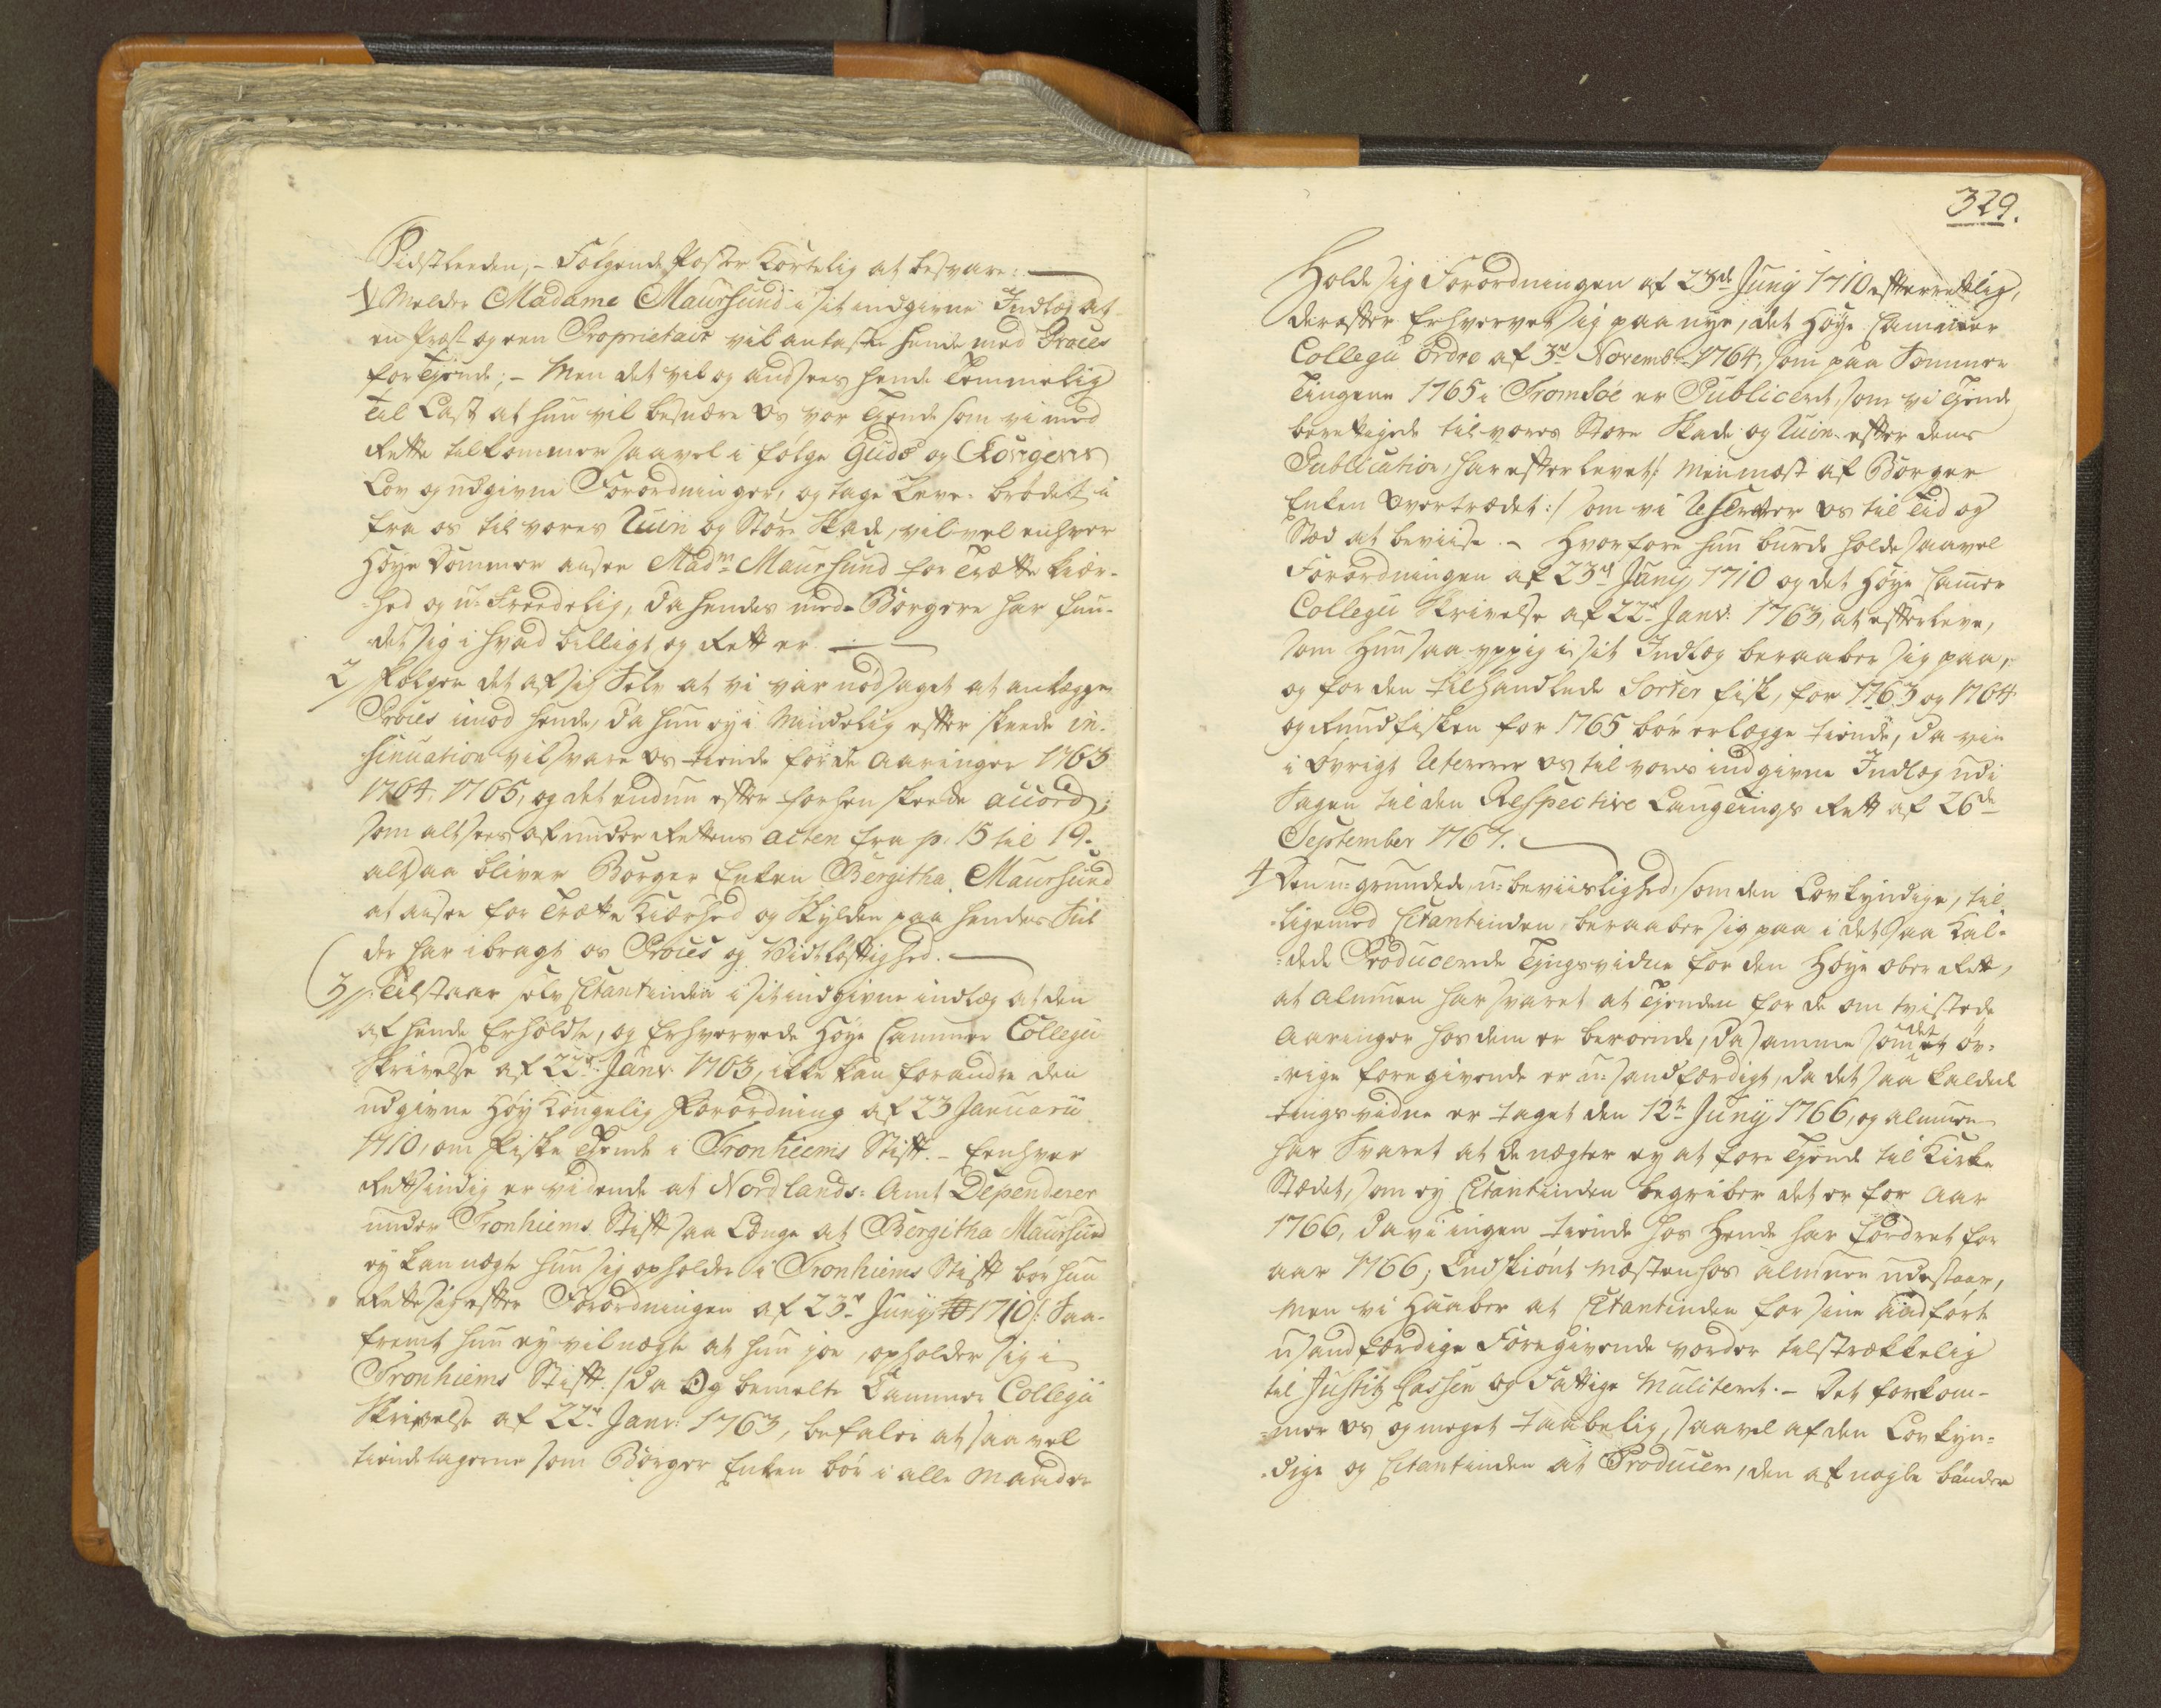 Sidstleeden, - Følgende Poster Kortelig at besvare: -
1/ Melder Madame Maursund i sit indgivne Indlæg at
en Præst og een Proprietair vil antaste hende med Proces
for Tjende; - Men det vil og andsees hende Temmelig
til Last at hun vil besnære os vor Tjende som vi med
Rette tilkommer saavel i følge Guds og Kongens
Lov og udgivne Forordninger, og tage Leve-brødet u
fra os til vores Ruin og Store Skade, vil vel enhver
Høye Dommer ansee Mad:m Maursund for Trætte kiær-
-hed og u-Freedelig, da hendes med-Borgere har fun-
det sig i hvad billigt og Rett er -
2/ følger det af sig Selv at vi var nødsaget at anlægge
Proces imod hende, da hun ey i Mindelig efter skeede in-
sinuation vil svare os tiende for de Aaringer 1763
1764, 1765, og det endnu efter forhen skeede accord;
som alt sees af under Rettens acten fra p. 15 til 19.
altsaa bliver Borger Enken Bergitha Maursund
at ansee for Trætte Kiærhed og Skylden paa hendes Siide
der har ibragt os Proces og Vidtløftighed. -
3/ Tilstaar selv Citantinden i sit indgivne indlæg at den
af hende Erholdte, og Erhvervede Høye Cammer Collegii
Skrivelse af 22de Janv. 1763, ikke kan forandre den
udgivne Høy Kongelig Forordning af 23 Januarii
1710, om Fiske Tjende i Tronhiems Stift. - Eenhver
Rettsindig er vidende at Nordlands-Amt Dependerer
under Tronhiems Stift saa Længe at Bergitha Maursund
ey kan nægte hun sig opholder i Tronhiems Stift bør hun
Rette sig efter Forordningen af 23de Junij 1710 /: Saa-
fremt hun ey vil nægte at hun joe, opholder sig i
Tronhiems Stift :/ da Og bemelte Cammer Collegii
Skrivelse af 22de Janv: 1763, befaler at saavel
tiendetagerne som Borger Enken bør i alle Maader
329.
Holde sig Forordningen af 23de Junij 1710 efterrettlig,
derefter Erhvervet sig paa nye, det Høye Cammer
Collegii Ordre af 3de Novembr 1764, som paa Sommer
Tingene 1765 i Tromsøe er Publiceret, som vi Tjende
berettigede til vores Store Skade og Ruin efter dens
Publication, har efterlevet /: men mæst af Borger
Enken Overtrædet :/ som vi Reserver os til Tid og
Stæd at beviise. - Hvorfore hun burde holde saavel
Forordningen af 23de Junij 1710 og det Høye Camer
Collegii Skrivelse af 22de Janv: 1763, at efterleve,
som Hun saa yppig i sit Indlæg beraaber sig paa,
og for den tilhandlede Sorter fisk, for 1763 og 1764
og Rundfisken for 1765 bør erlægge tiende, da vi
i øvrigt Refererer os til vores indgivne Indlæg udi
Sagen til den Respective Laugtings Rett af 26de
September 1767. -
4 Den u-grundede u-beviislighed, som den Lovkyndige, til
-ligemed Citantinden, beraaber sig paa i det saa Kal-
-dede Producerede Tingsvidne for den Høye ober Rett,
at Almuen har svaret at Tjenden for de om tvistede
Aaringer hos dem er beroende, da samme som det øv-
-rige foregivende er u-sandfærdigt, da det saa kaldede
tingsvidne er taget den 12te Junij 1766, og almuen
har Svaret at de nægter ey at føre Tjende til Kirke
Stædet, som ey Citantinden begriber det er for Aar
1766, da vi ingen tiende hos Hende har fordret for
aar 1766; Endskiønt mæsten hos almuen udestaar,
Men vi Haaber at Citantinden for sine anført
usandfærdige Foregivende vorder tilstrækkelig
til Justitz Cassen og Fattige Mulcteret. - Det forekom-
-mer os og meget taabelig, saavel af den Lovkyn-
-dige og Citantinden at Producere, den af nogle bønder